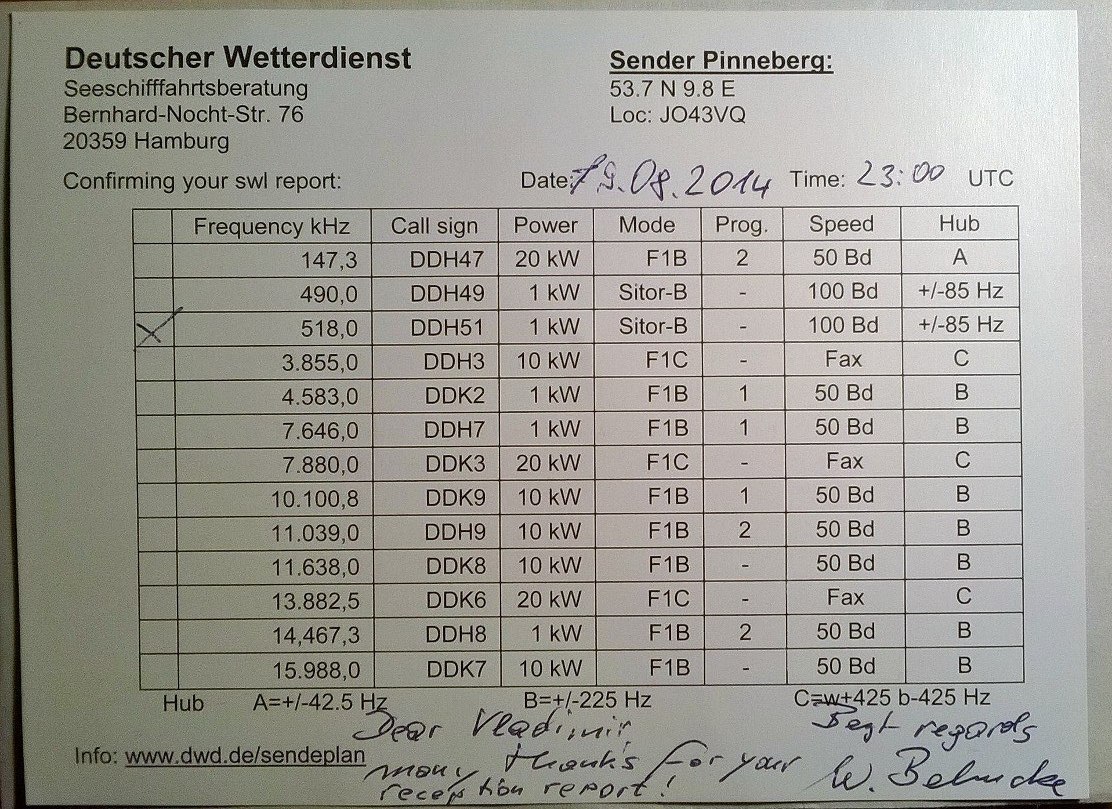 Deutscher Wetterdienst
Seeschifffahrtsberatung
Bernhard-Nocht-Str. 76
20359 Hamburg
Sender Pinneberg:
53.7 N 9.8 E
Loc: JO43VQ
Confirming your swl report: Date: 19.08.2014 Time: 23:00 UTC
Frequency kHz Call sign Power Mode Prog. Speed Hub
147,3 DDH47 20 kW F1B 2 50 Bd A
490,0 DDH49 1 kW Sitor-B - 100 Bd +/-85 Hz
518,0 DDH51 1 kW Sitor-B - 100 Bd +/-85 Hz
3.855,0 DDH3 10 kW F1C - Fax C
4.583,0 DDK2 1 kW F1B 1 50 Bd B
7.646,0 DDH7 1 kW F1B 1 50 Bd B
7.880,0 DDK3 20 kW F1C - Fax C
10.100,8 DDK9 10 kW F1B 1 50 Bd B
11.039,0 DDH9 10 kW F1B 2 50 Bd B
11.638,0 DDK8 10 kW F1B - 50 Bd B
13.882,5 DDK6 20 kW F1C - Fax C
14,467,3 DDH8 1 kW F1B 2 50 Bd B
15.988,0 DDK7 10 kW F1B - 50 Bd B
Hub A=+/-42.5 Hz B=+/-225 Hz C=w+425 b-425 Hz
Info: www.dwd.de/sendeplan
Dear Vladimir
many thanks for your
reception report!
Best regards
W.